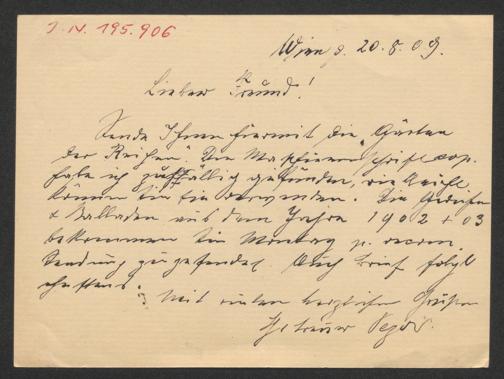 J. N. 195.906
Wien d. 20.8.09.
Lieber Freund!
Sende Ihnen hiermit die "Gärten
der Reihen". Die Maschinenschriftcop.
habe ich zufällig gefunden, vielleicht
können Sie sie verwenden. Die Gedichte
& Balladen aus dem Jahre 1902 + 03
bekommen Sie Montag p. recom.
Sendung zugesendet. Auch Brief folgt
Mit vielen herzlichen Grüßen
Ihr treuer